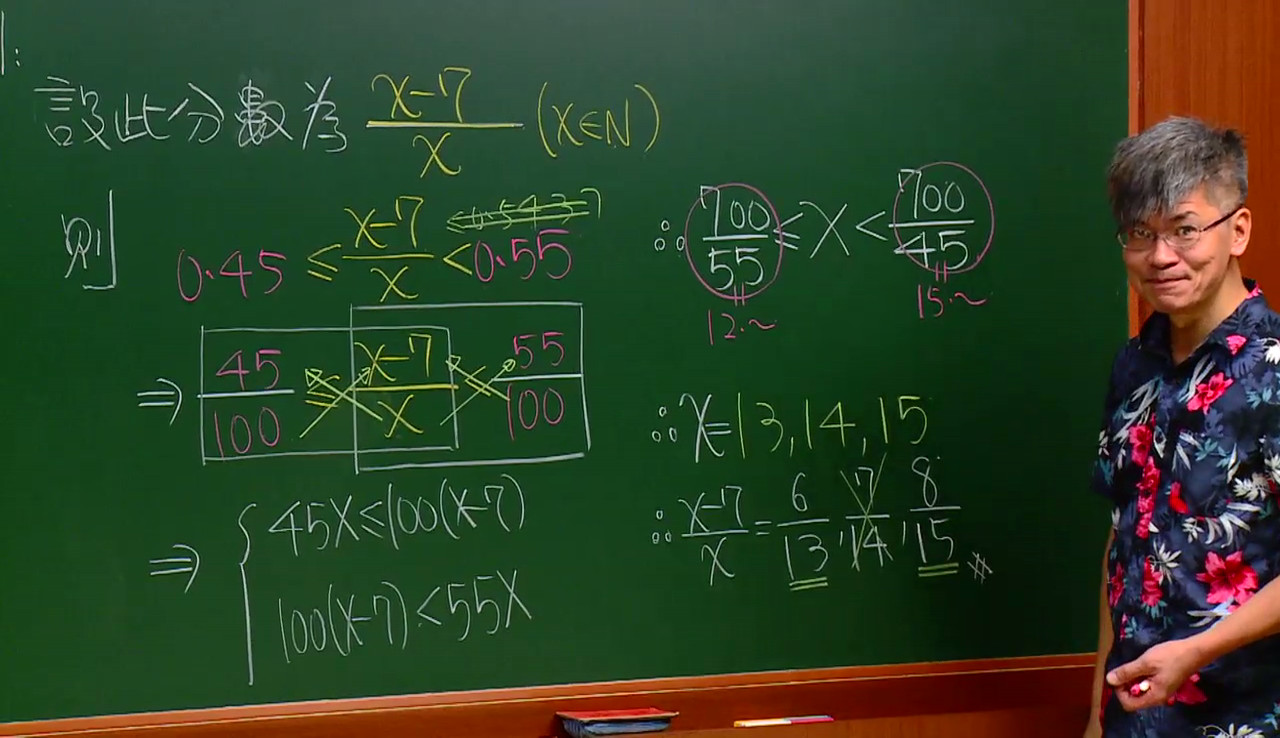 1:
設此分數為 x-7/x (x∈N)
則 0.45 ≤ x-7/x < 0.55
⇒ 45/100 ≤ x-7/x < 55/100
⇒ { 45x≤100(x-7)
100(x-7)<55x
∴ 700/55 ≤ x < 700/45
12.~ 15.~
∴ x=13,14,15
∴ x-7/x = 6/13, 7/14, 8/15 #